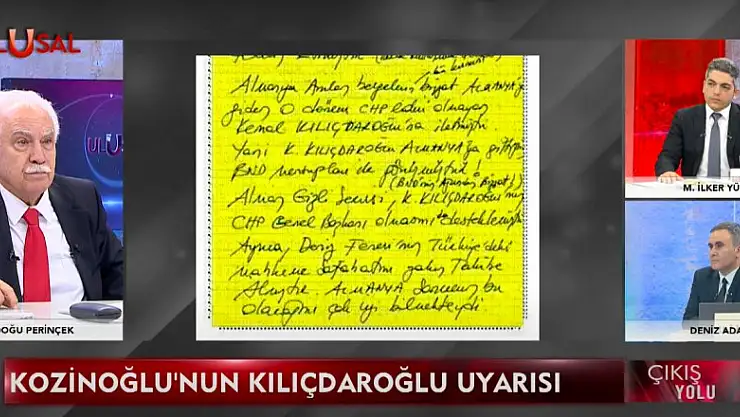 ULUSAL
Almanya
gider, O dönem CHP lideri olmayan
Kemal KILIÇDAROĞLU'na iletmiştir.
Yani K. KILIÇDAROĞLU ALMANYA'ya
BND mensupları'da görüşmüştür.
Alman Gizli Servisi, K. KILIÇDAROĞLU'nun
CHP Genel Başkanı olmasını desteklemiştir
Ayrıca, Deniz Feneri'nin Türkiye'deki
mahkeme safahatını yakın Takibe
Almıştır. ALMANYA bu
olacağını çok iyi bilmekteydi
DOĞU PERİNÇEK
M. İLKER YÜ
DENİZ ADA
KOZİNOĞLU'NUN KILIÇDAROĞLU UYARISI
ÇIKIŞ
YOLU